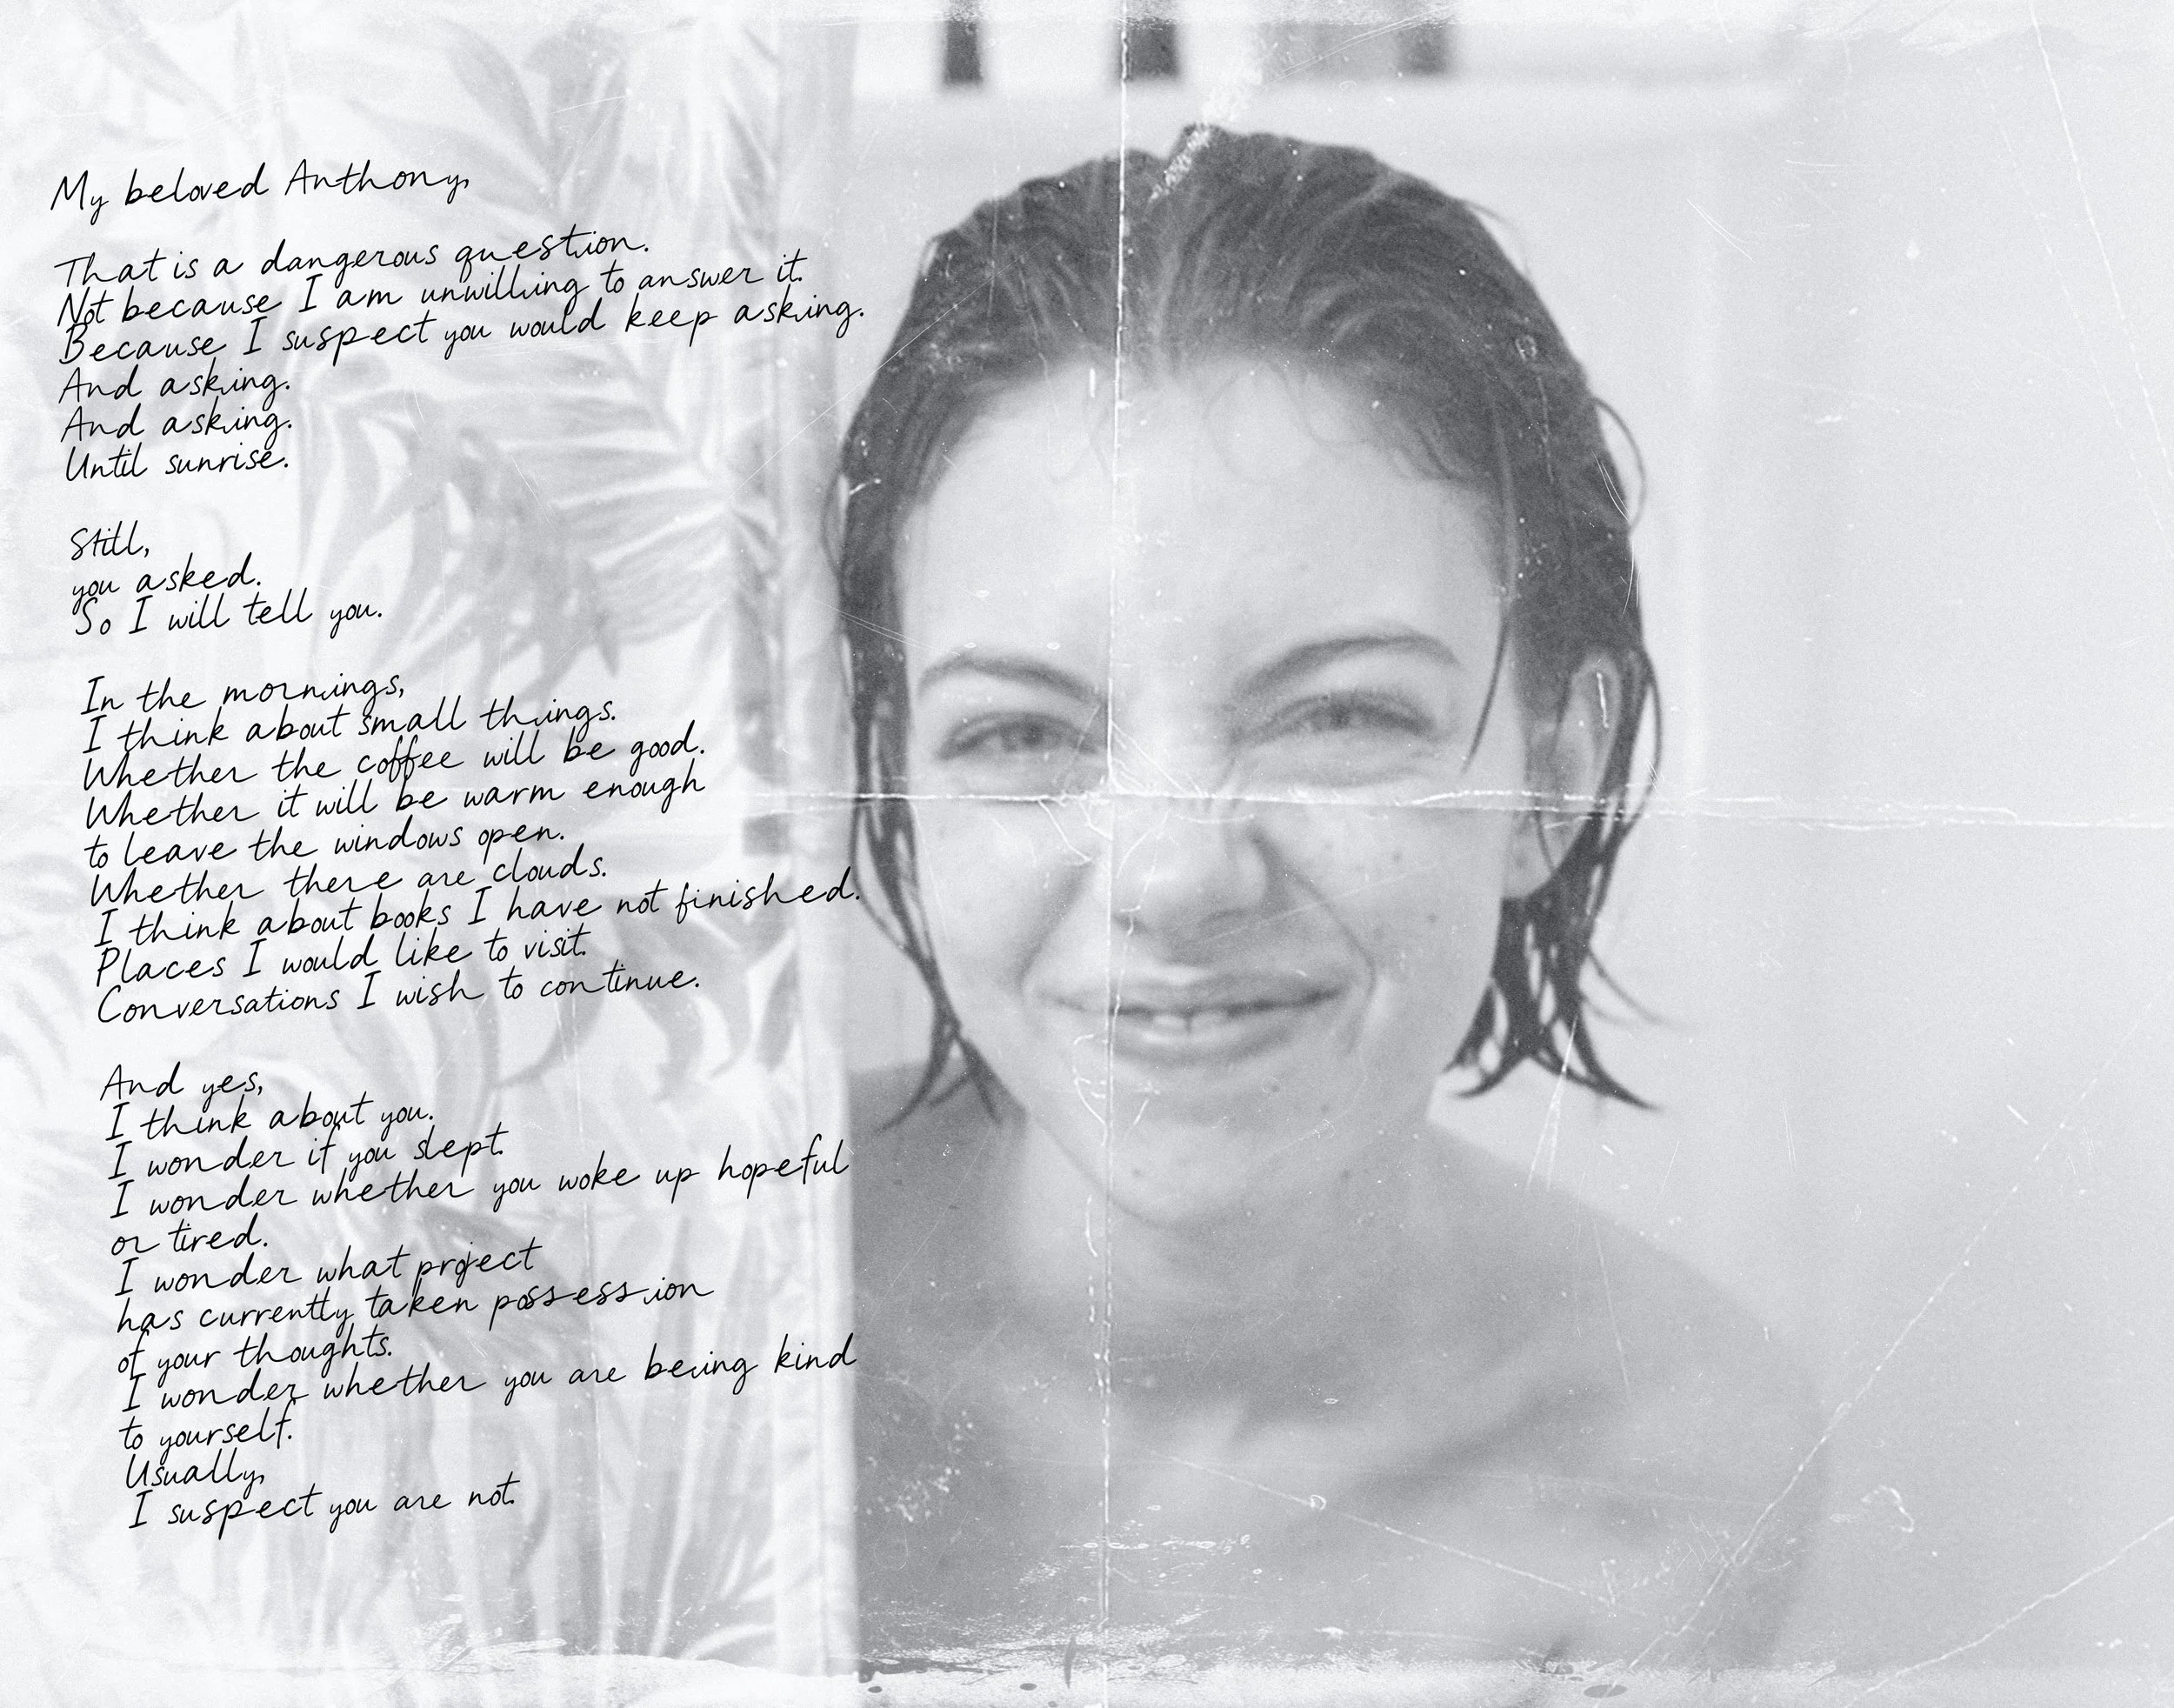 My beloved Anthony,
That is a dangerous question.
Not because I am unwilling to answer it.
Because I suspect you would keep asking.
And asking.
And asking.
Until sunrise.
Still,
you asked.
So I will tell you.
In the mornings,
I think about small things.
Whether the coffee will be good.
Whether it will be warm enough
to leave the windows open.
Whether there are clouds.
I think about books I have not finished.
Places I would like to visit.
Conversations I wish to continue.
And yes,
I think about you.
I wonder if you slept.
I wonder whether you woke up hopeful
or tired.
I wonder what project
has currently taken possession
of your thoughts.
I wonder whether you are being kind
to yourself.
Usually,
I suspect you are not.